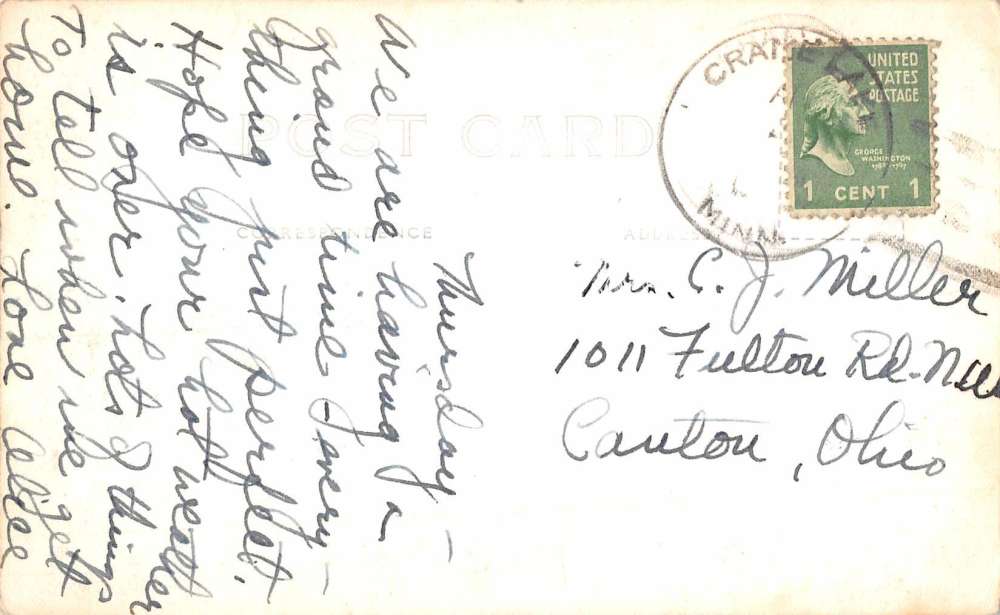 Thursday -
We are having a
grand time - every -
thing just perfect.
Hope your hot weather
is over. Lots of things
to tell when we get
home. Love Alice
POST CARD
CORRESPONDENCE
ADDRESS
CRANE LAKE
MINN.
UNITED
STATES
POSTAGE
GEORGE
WASHINGTON
1 CENT 1
Mrs. C. J. Miller
1011 Fulton Rd. N.W.
Canton, Ohio